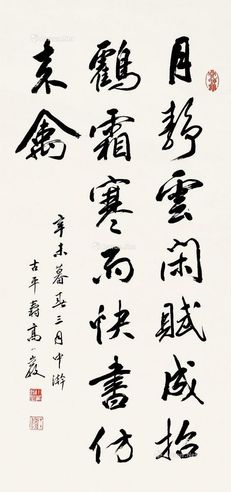 月静雲闲賦成招
鶴霜寒雨快書仿
来禽
辛未暮春三月中澣
古平壽高一嚴